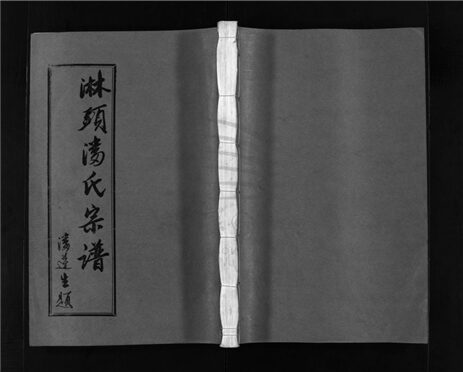 淋頭潘氏宗譜
潘蓮生題